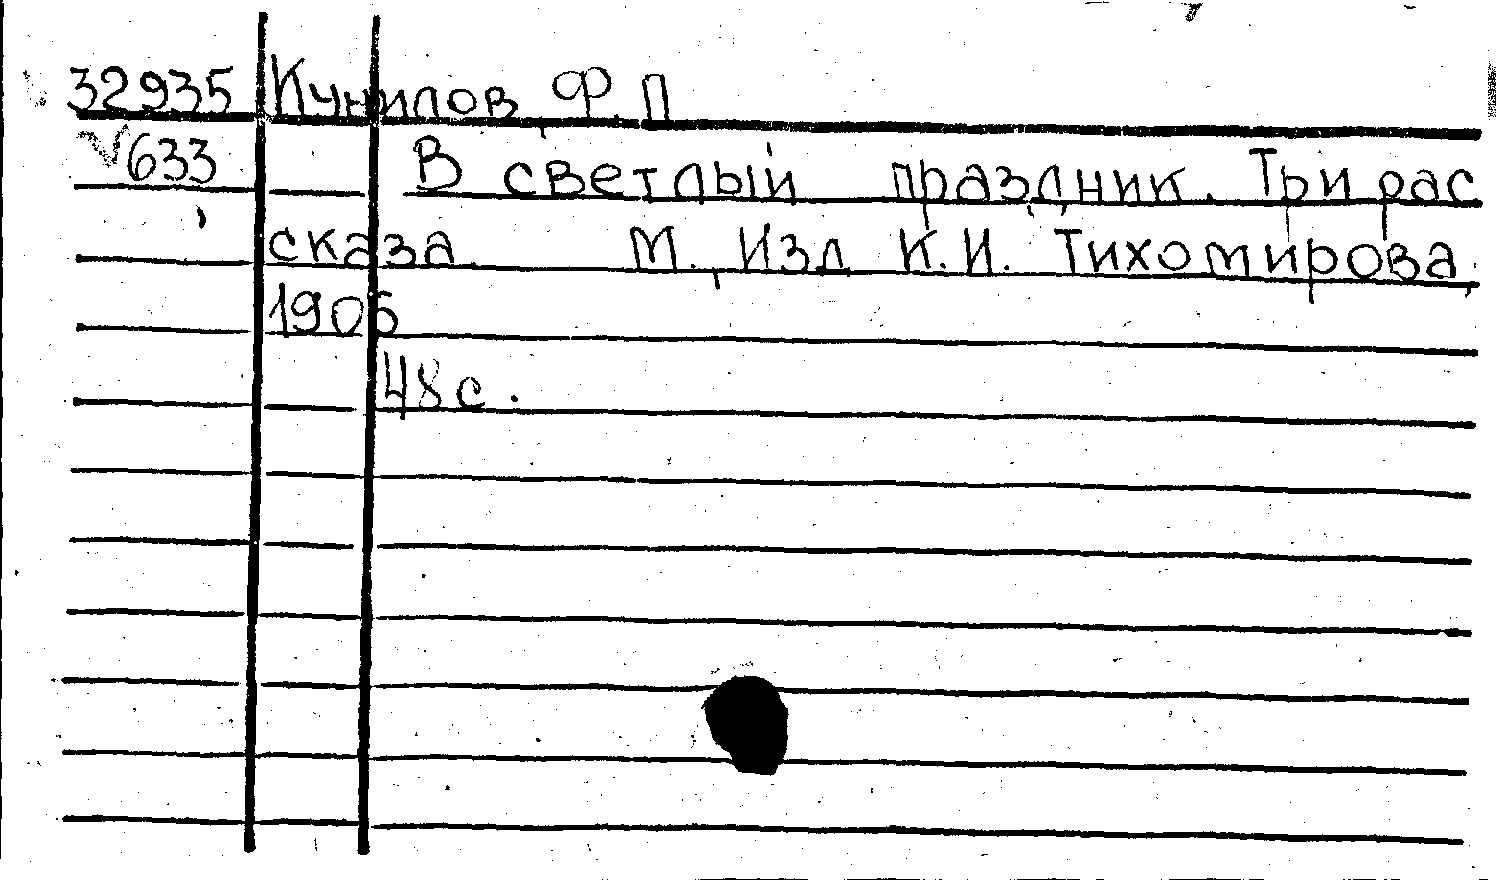 32935 Кунилов, Ф. П.
633 В светлый праздник. Три рас
сказа. М., Изд. К. И. Тихомирова,
1905
48 с.